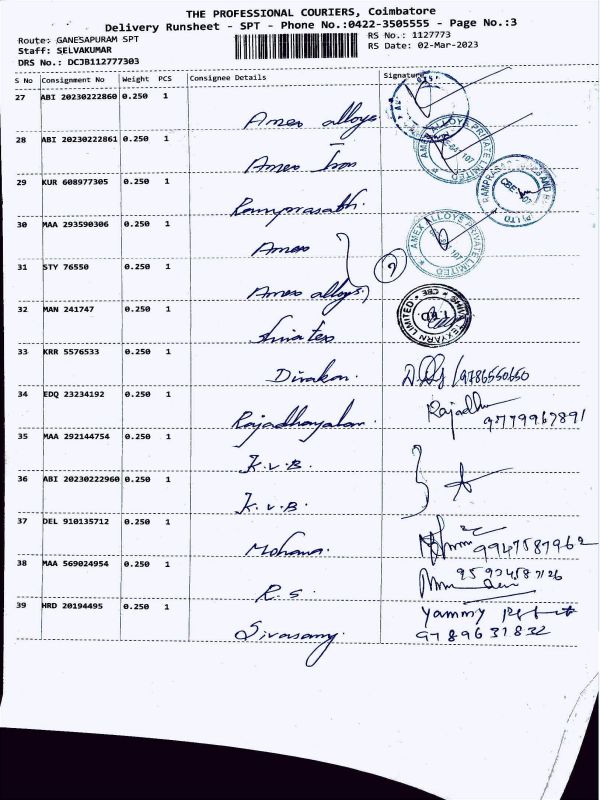 THE PROFESSIONAL COURIERS, Coimbatore
Delivery Runsheet - SPT - Phone No.:0422-3505555 - Page No.:3
Route: GANESAPURAM SPT
RS No.: 1127773
Staff: SELVAKUMAR
RS Date: 02-Mar-2023
DRS No.: DCJB112777303
S No Consignment No Weight PCS Consignee Details Signature
27 ABI 20230222860 0.250 1 Amex alloys
28 ABI 20230222861 0.250 1 Amex Iron
29 KUR 608977305 0.250 1 Ramprasath.
30 MAA 293590306 0.250 1 Amex
31 STY 76550 0.250 1 Amex alloys
32 MAN 241747 0.250 1
33 KRR 5576533 0.250 1 Divakar. /9786550650
34 EDQ 23234192 0.250 1 Rajadhayalan Rajadh
9779967891
35 MAA 292144754 0.250 1 K.V.B.
36 ABI 20230222960 0.250 1 K.V.B.
37 DEL 910135712 0.250 1 Mohana. 9947587962
38 MAA 569024954 0.250 1 R.S.
39 HRD 20194495 0.250 1 Sivasamy. Yammy
9789631832
AMEX ALLOYS PRIVATE LIMITED
AMEX ALLOYS PRIVATE LIMITED